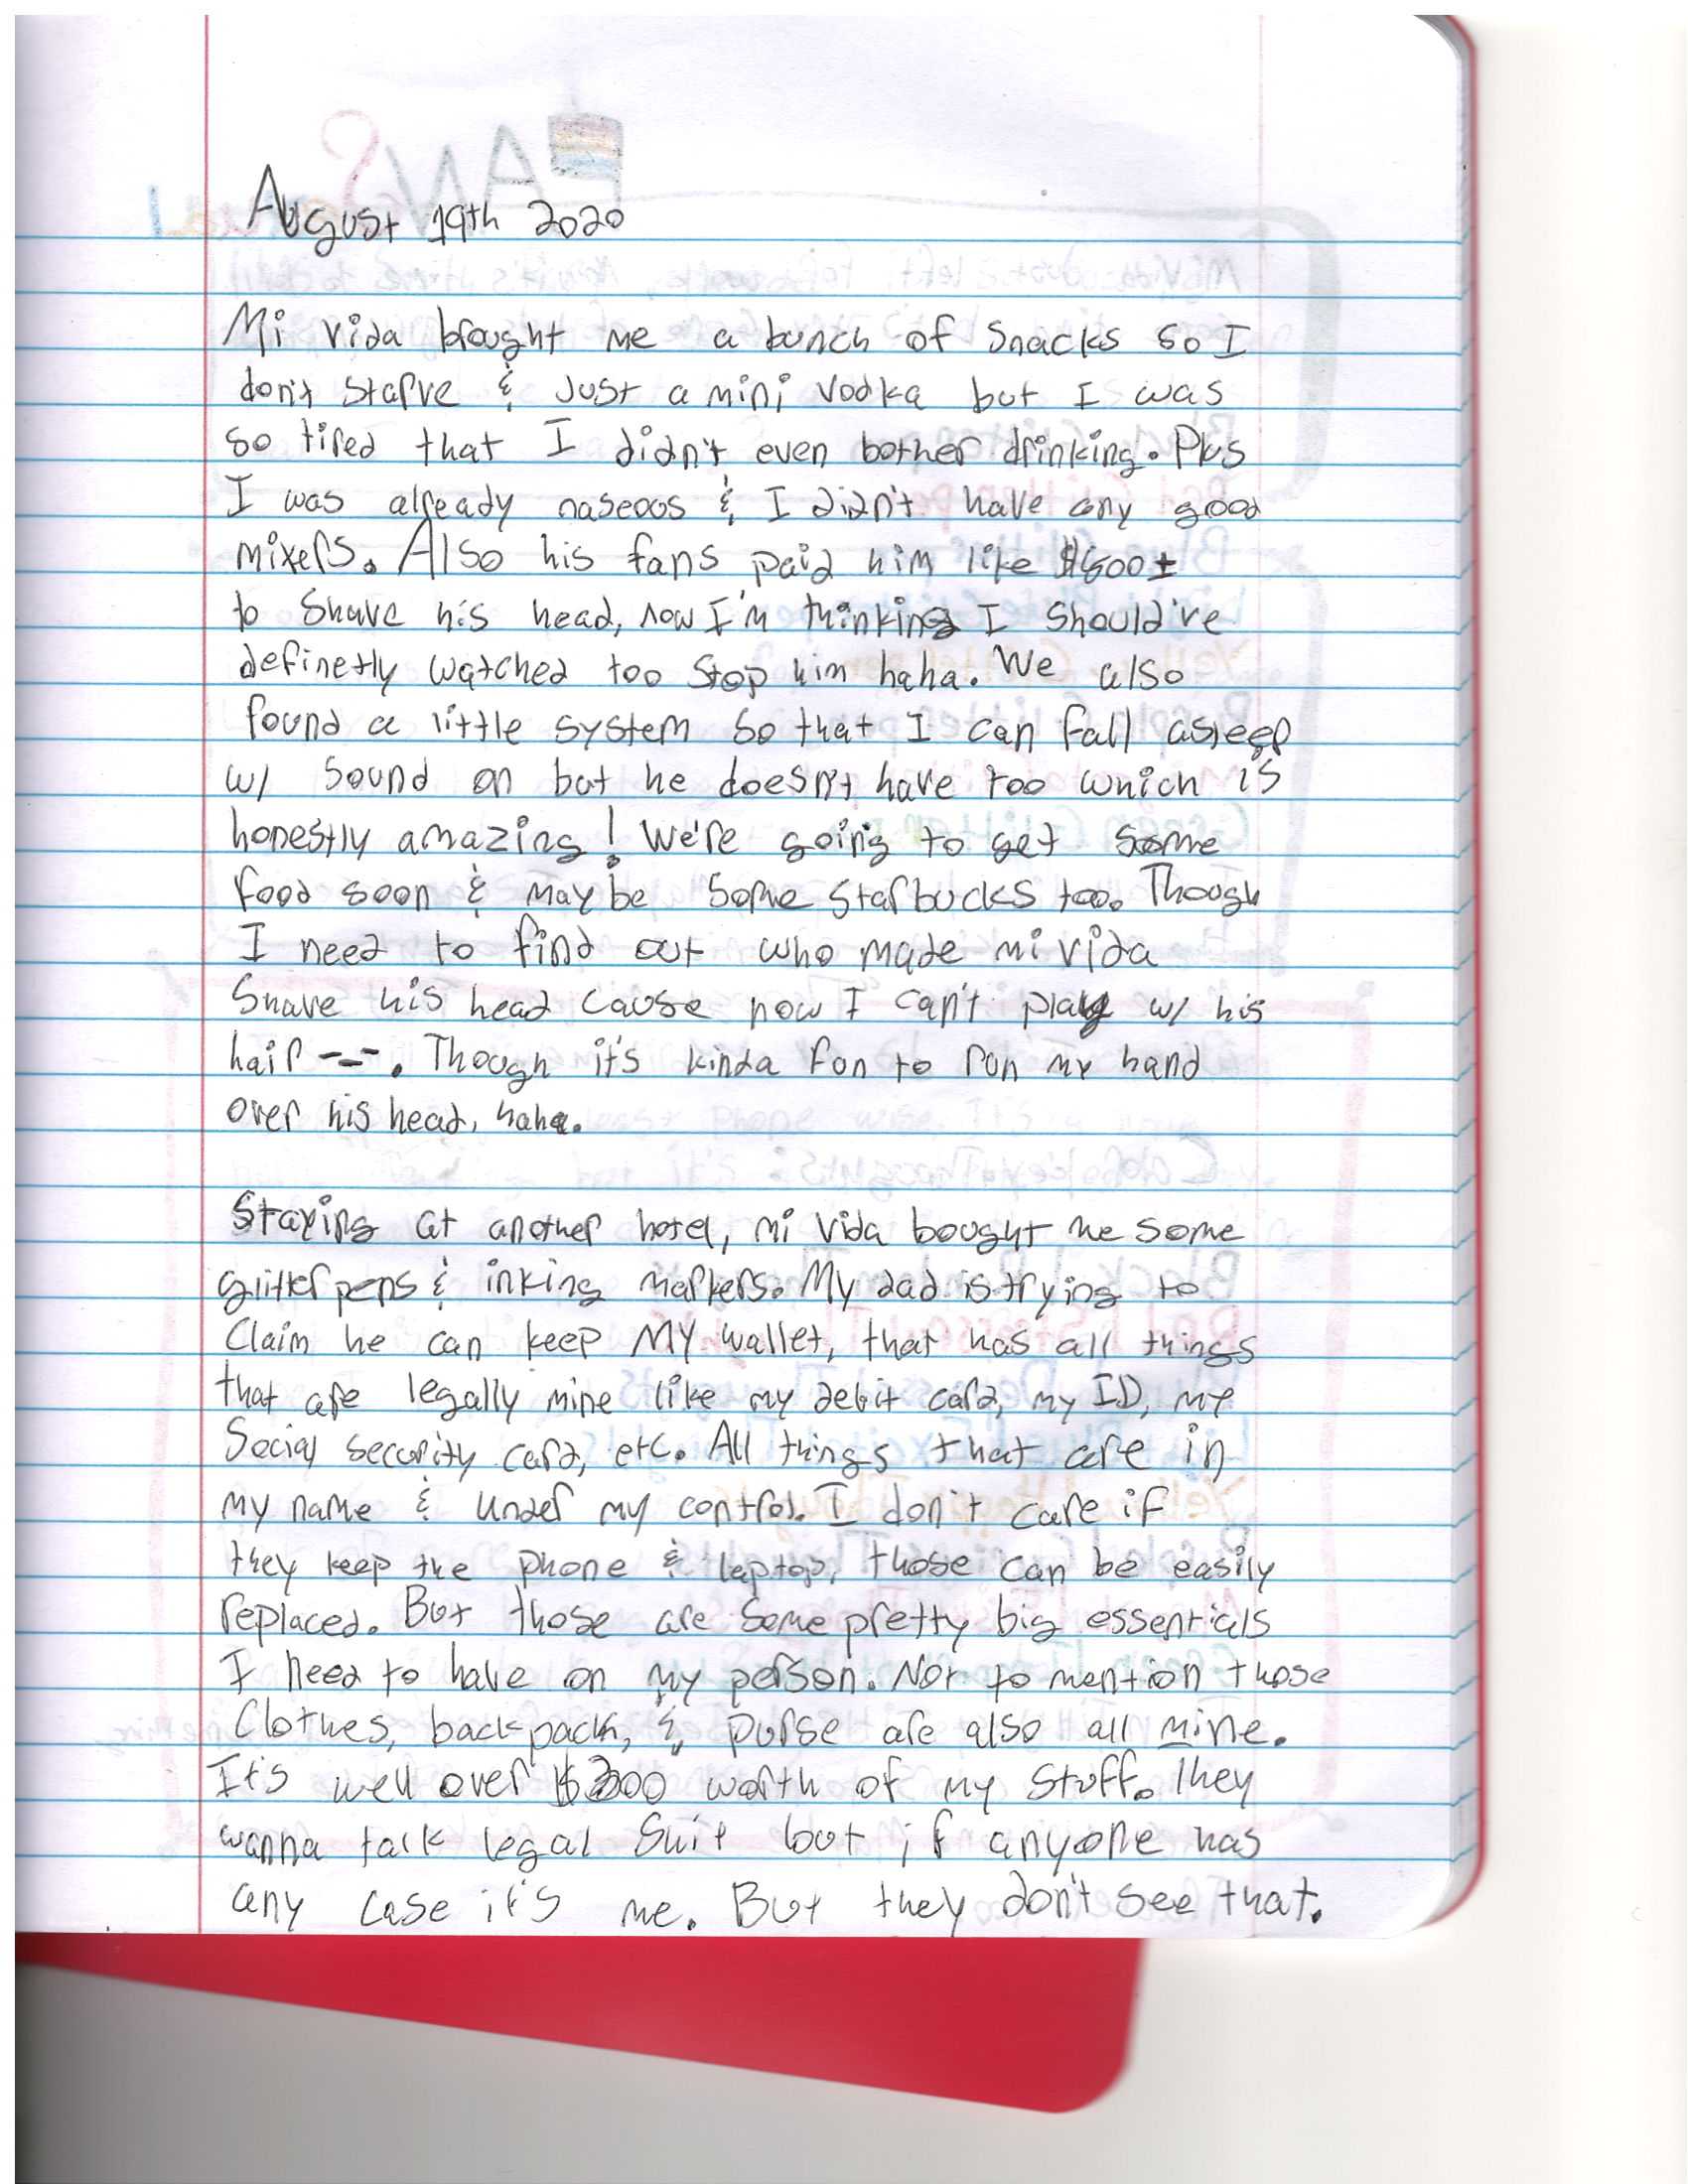 August 19th 2020
Mi vida brought me a bunch of snacks so I
don't starve & just a mini vodka but I was
so tired that I didn't even bother drinking. Plus
I was already naseous & I didn't have any good
mixers. Also his fans paid him like $600±
to shave his head, now I'm thinking I should've
definetly watched too stop him haha. We also
found a little system so that I can fall asleep
w/ sound on but he doesn't have too which is
honestly amazing! We're going to get some
food soon & maybe some starbucks too. Though
I need to find out who made mi vida
shave his head cause now I can't play w/ his
hair -_-. Though it's kinda fun to run my hand
over his head, haha.
Staying at another hotel, mi vida bought me some
glitter pens & inking markers. My dad is trying to
claim he can keep MY wallet, that has all things
that are legally mine like my debit card, my ID, my
social security card, etc. All things that are in
my name & under my control. I don't care if
they keep the phone & laptop, those can be easily
replaced. But those are some pretty big essentials
I need to have on my person. Not to mention those
clothes, backpack, & purse are also all mine.
It's well over worth of my stuff. They
wanna talk legal suit but if anyone has
any case it's me. But they don't see that.